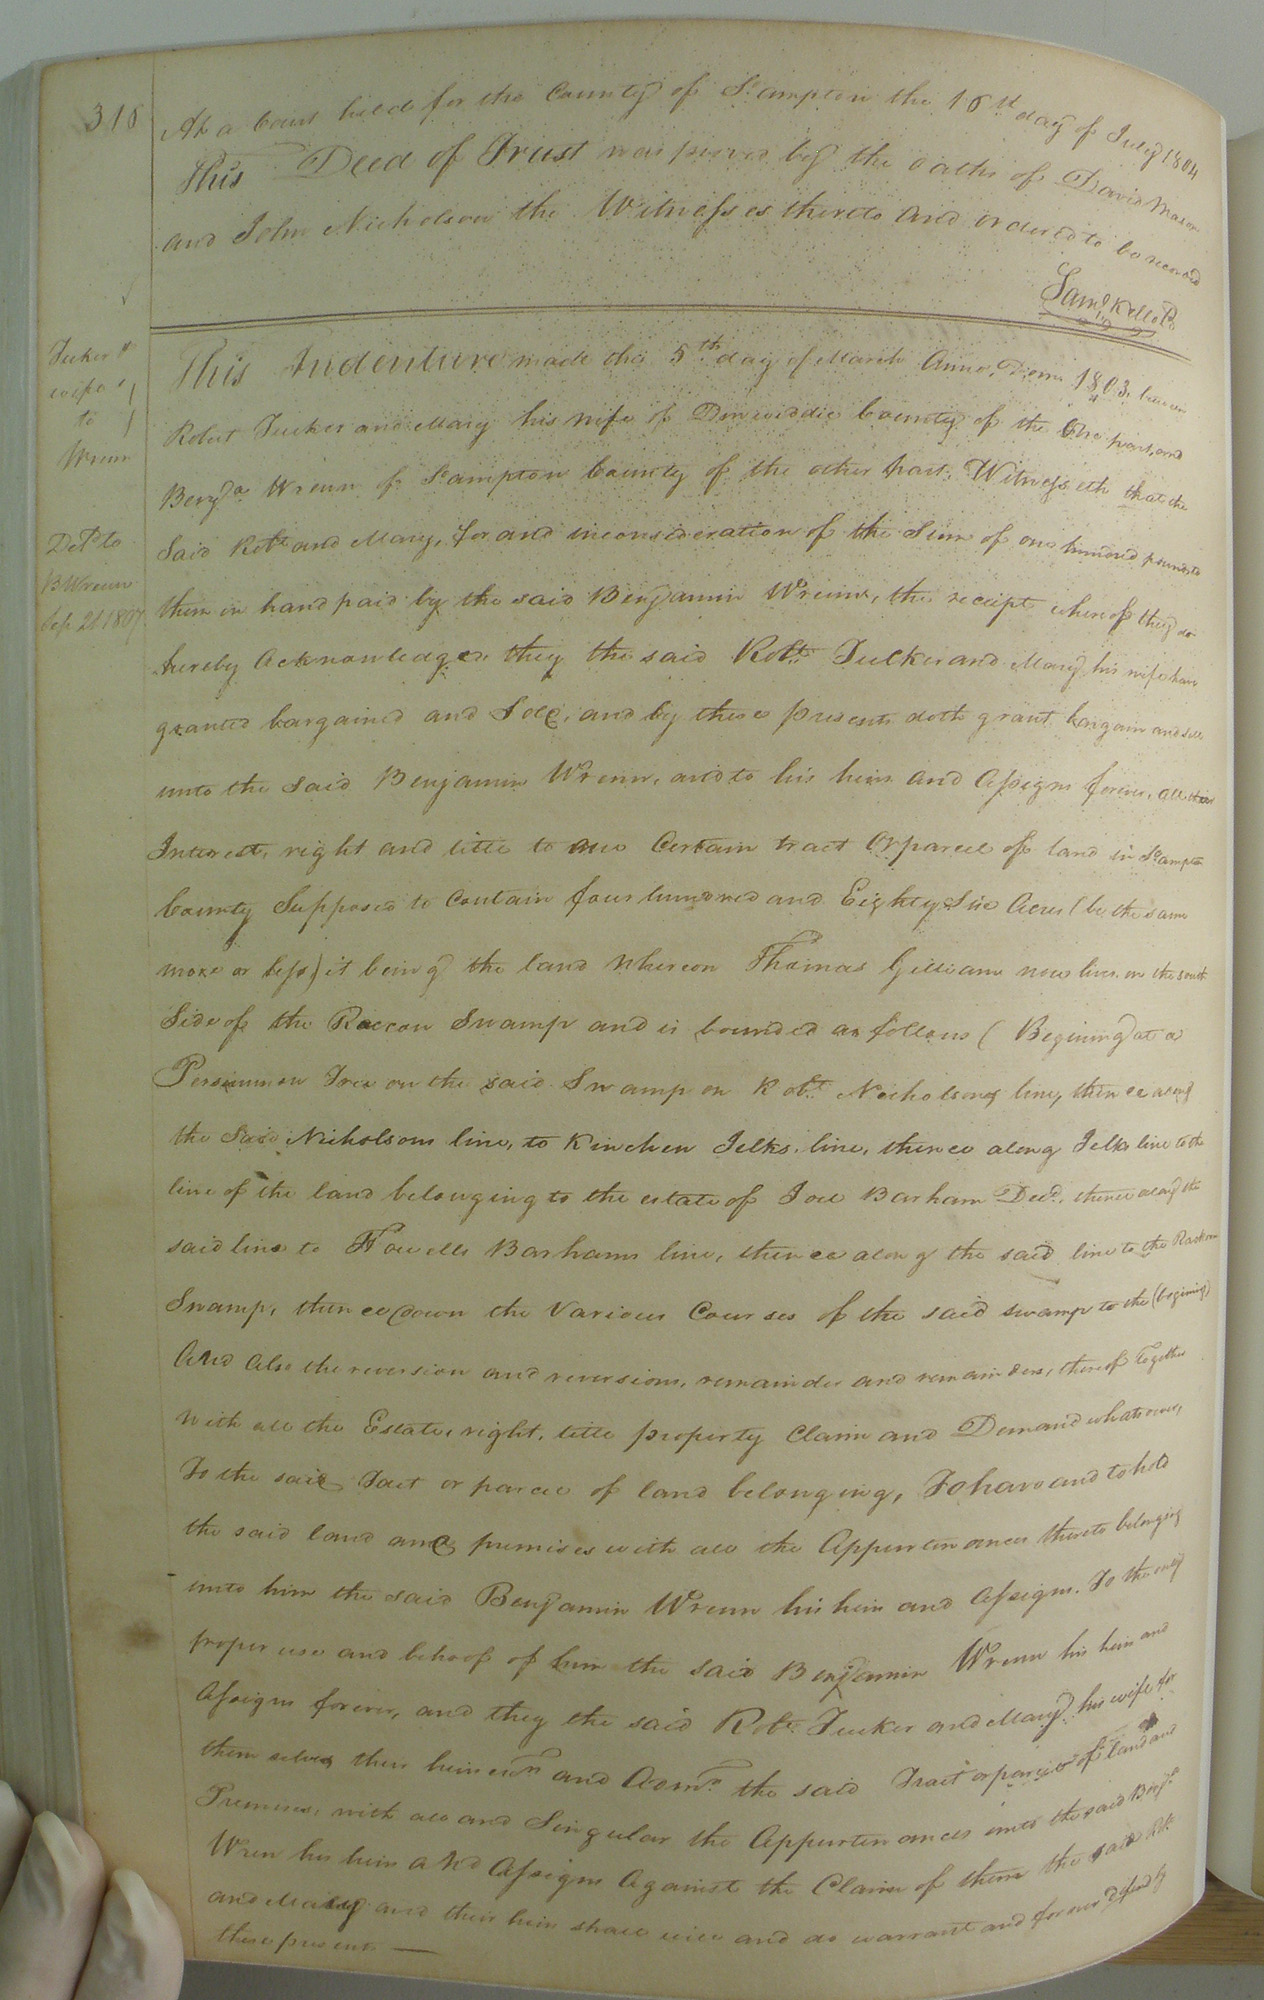 318
At a Court held for the County of S.ampton the 16th day of July 1804
This Deed of Trust was proved by the oaths of David Mason
and John Nicholson the Witnesses thereto and ordered to be record
Saml Kello
Tucker
to
Wrenn
Deld to
B Wrenn
Sep 21 1807
This Indenture made this 5th day of March Anno. Domi 1803 between
Robert Tucker and Mary his wife of Dinwiddie County of the One part, and
Benja Wrenn of S.ampton County of the other part. Witnesseth that the
Said Robt and Mary, for and inconsideration of the Sum of one hundred pounds to
them in hand paid by the said Benjamin Wrenn, the receipt whereof they do
hereby Acknowledge, they the said Robt. Tucker and Mary his wife have
granted bargained and Sold, and by these presents doth grant bargain and sell
unto the said Benjamin Wrenn, and to his heirs and Assigns forever, all their
Interest, right and title to one Certain tract Or parcel of land in S.ampton
County Supposed to Contain four hundred and Eighty Six Acres (be the same
more or less) it being the land whereon Thomas Gilliam now lives on the south
Side of the Raccon Swamp and is bounded as follows (Begining at a
Persimmon Tree on the said Swamp on Robt. Nicholsons line, thence along
the Said Nicholsons line, to Kinchen Jelks. line, thence along Jelks line to the
line of the land belonging to the estate of Joel Barham Decd. thence along the
said line to Howells Barhams line, thence along the said line to the Raccon
Swamp, thence down the Various Courses of the said swamp to the (begining)
And Also the reversion and reversions, remainder and remainders, thereof Together
With all the Estate, right, title property Claim and Demand whatsoever,
To the said Tact or parcel of land belonging, To have and to hold
the said land and premises with all the Appurtenances thereto belonging
unto him the said Benjamin Wrenn his heirs and Assigns. To the only
proper use and behoof of him the said Benjamin Wrenn his heirs and
Assigns forever, and they the said Robt. Tucker and Mary his wife for
them selves their heirs exrs and Admrs the said Tract or parcel of land and
Premises, with all and Singular the Appurtenances unto the said Benja
Wren his heirs and Assigns Against the Claim of them the said Robt
and Mary and their heirs shall will and do warrant and forever defend by
these presents —